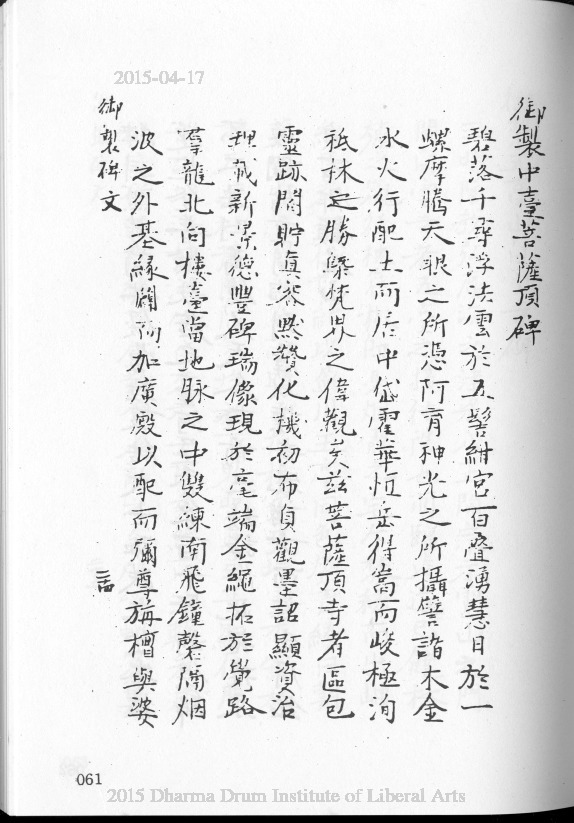 2015-04-17
御製中臺菩薩頂碑
碧落千尋浮法雲於五髻紺宮百疊湧慧日於一
螺摩騰天眼之所憑阿育神光之所攝譬諸木金
水火行配土而居中岱霍華恒岳得嵩而峻極洵
祇林之勝槩梵界之偉觀矣茲菩薩頂寺者區包
靈跡閣貯真容黙贊化機初布貞觀墨詔顯資治
理載新景德豐碑瑞像現於毫端金繩拓於覺路
羣龍北向樓臺當地脉之中雙練南飛鐘磬隔烟
波之外基緣闢而加廣殿以配而彌尊旃檀與婆
御製碑文
061
2015 Dharma Drum Institute of Liberal Arts